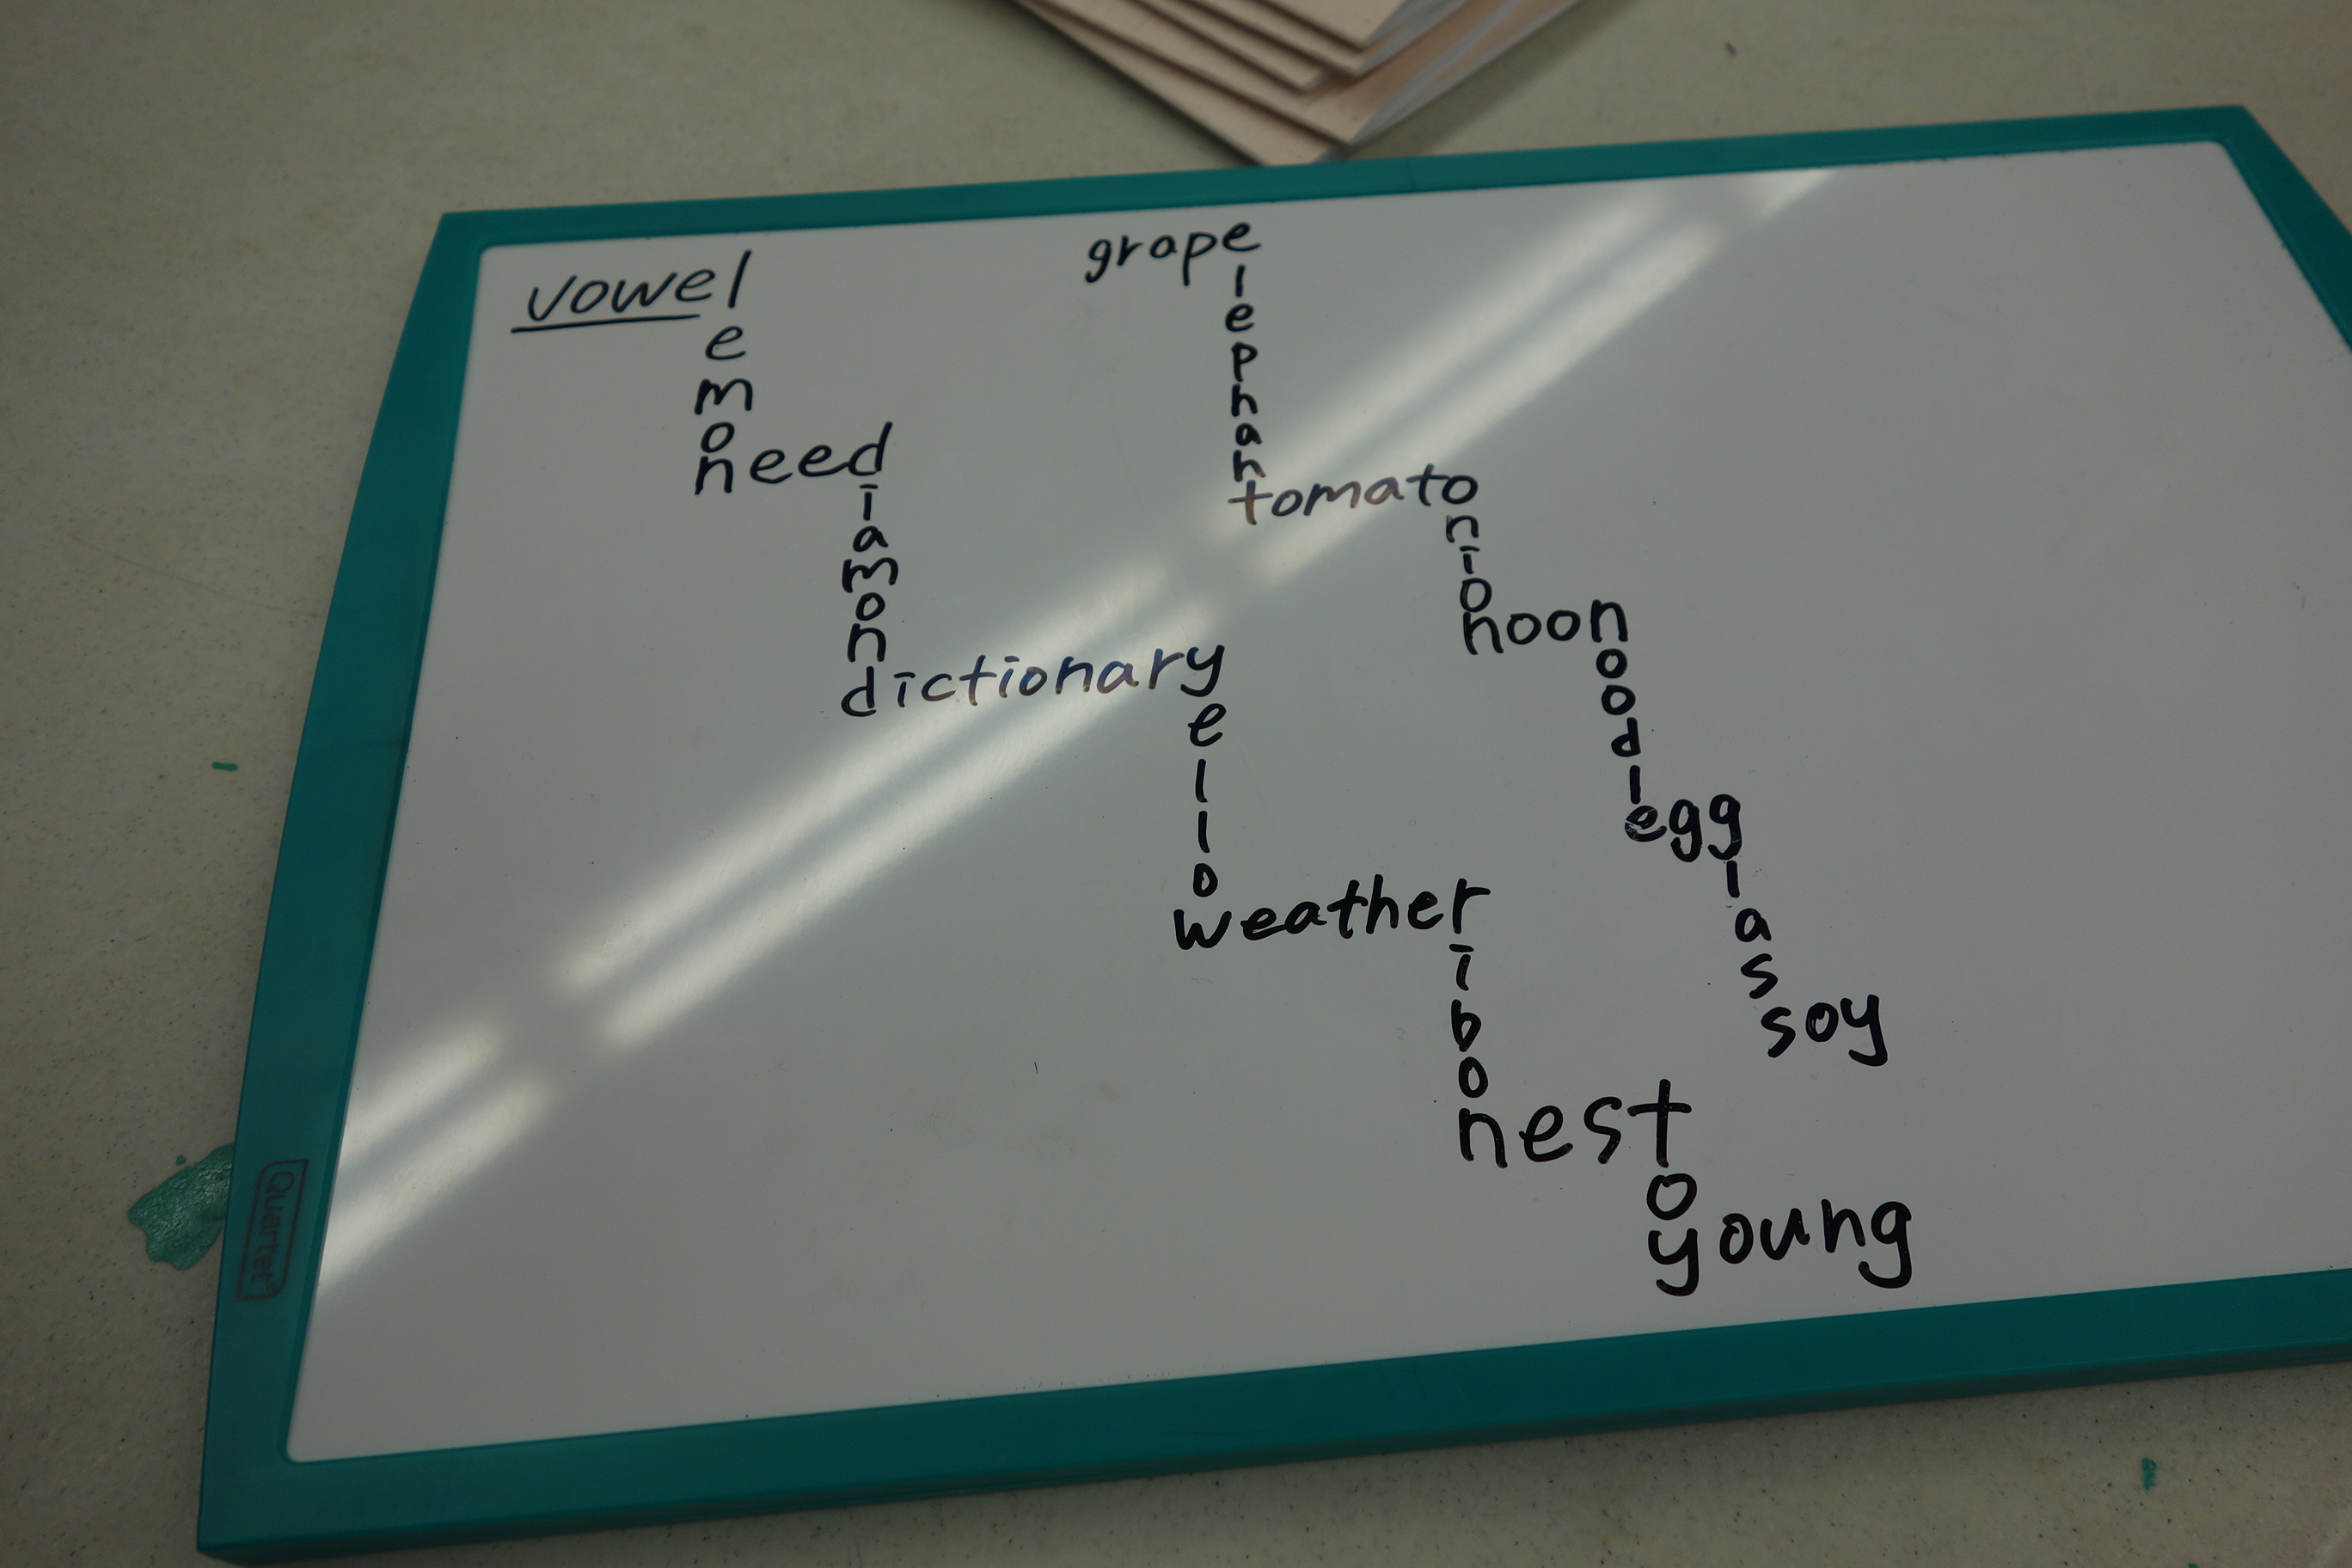 vowel
lemon
need
diamond
dictionary
yellow
weather
ribon
nest
toy
young
grape
elephant
tomato
onion
noon
noodle
egg
glass
soy
Quartet